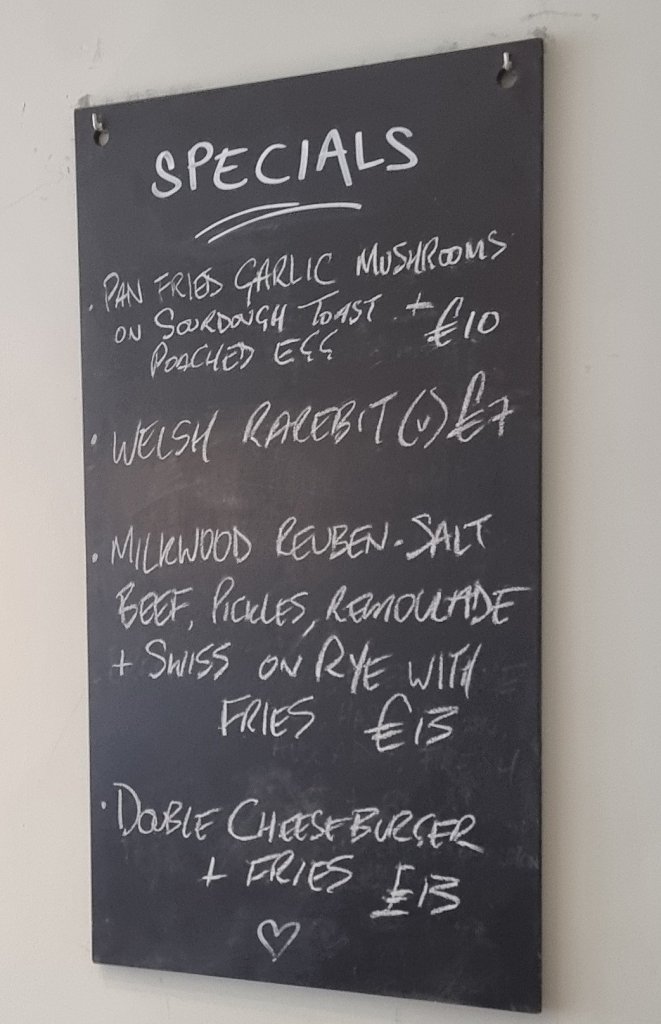 SPECIALS
• PAN FRIED GARLIC MUSHROOMS
ON SOURDOUGH TOAST +
POACHED EGG £10
• WELSH RAREBIT (V) £7
• MILKWOOD REUBEN - SALT
BEEF, PICKLES, REMOULADE
+ SWISS ON RYE WITH
FRIES £13
• DOUBLE CHEESEBURGER
+ FRIES £13